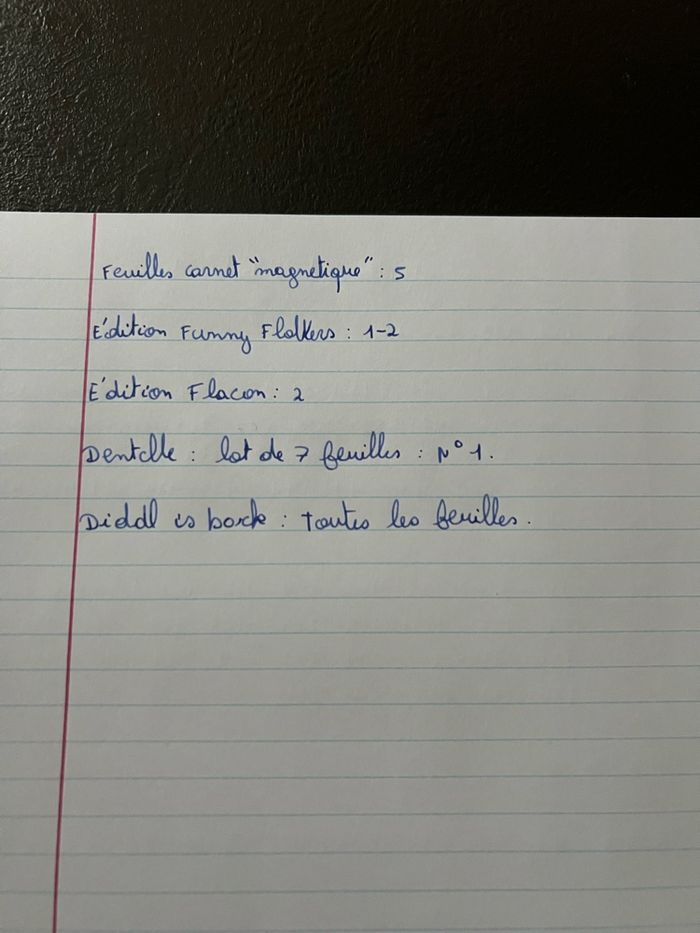 Feuilles carnet "magnetique" : 5
Édition Funny Flolkers : 1-2
Édition Flacon : 2
Dentelle : lot de 7 feuilles : N° 1.
Diddl is back : toutes les feuilles.